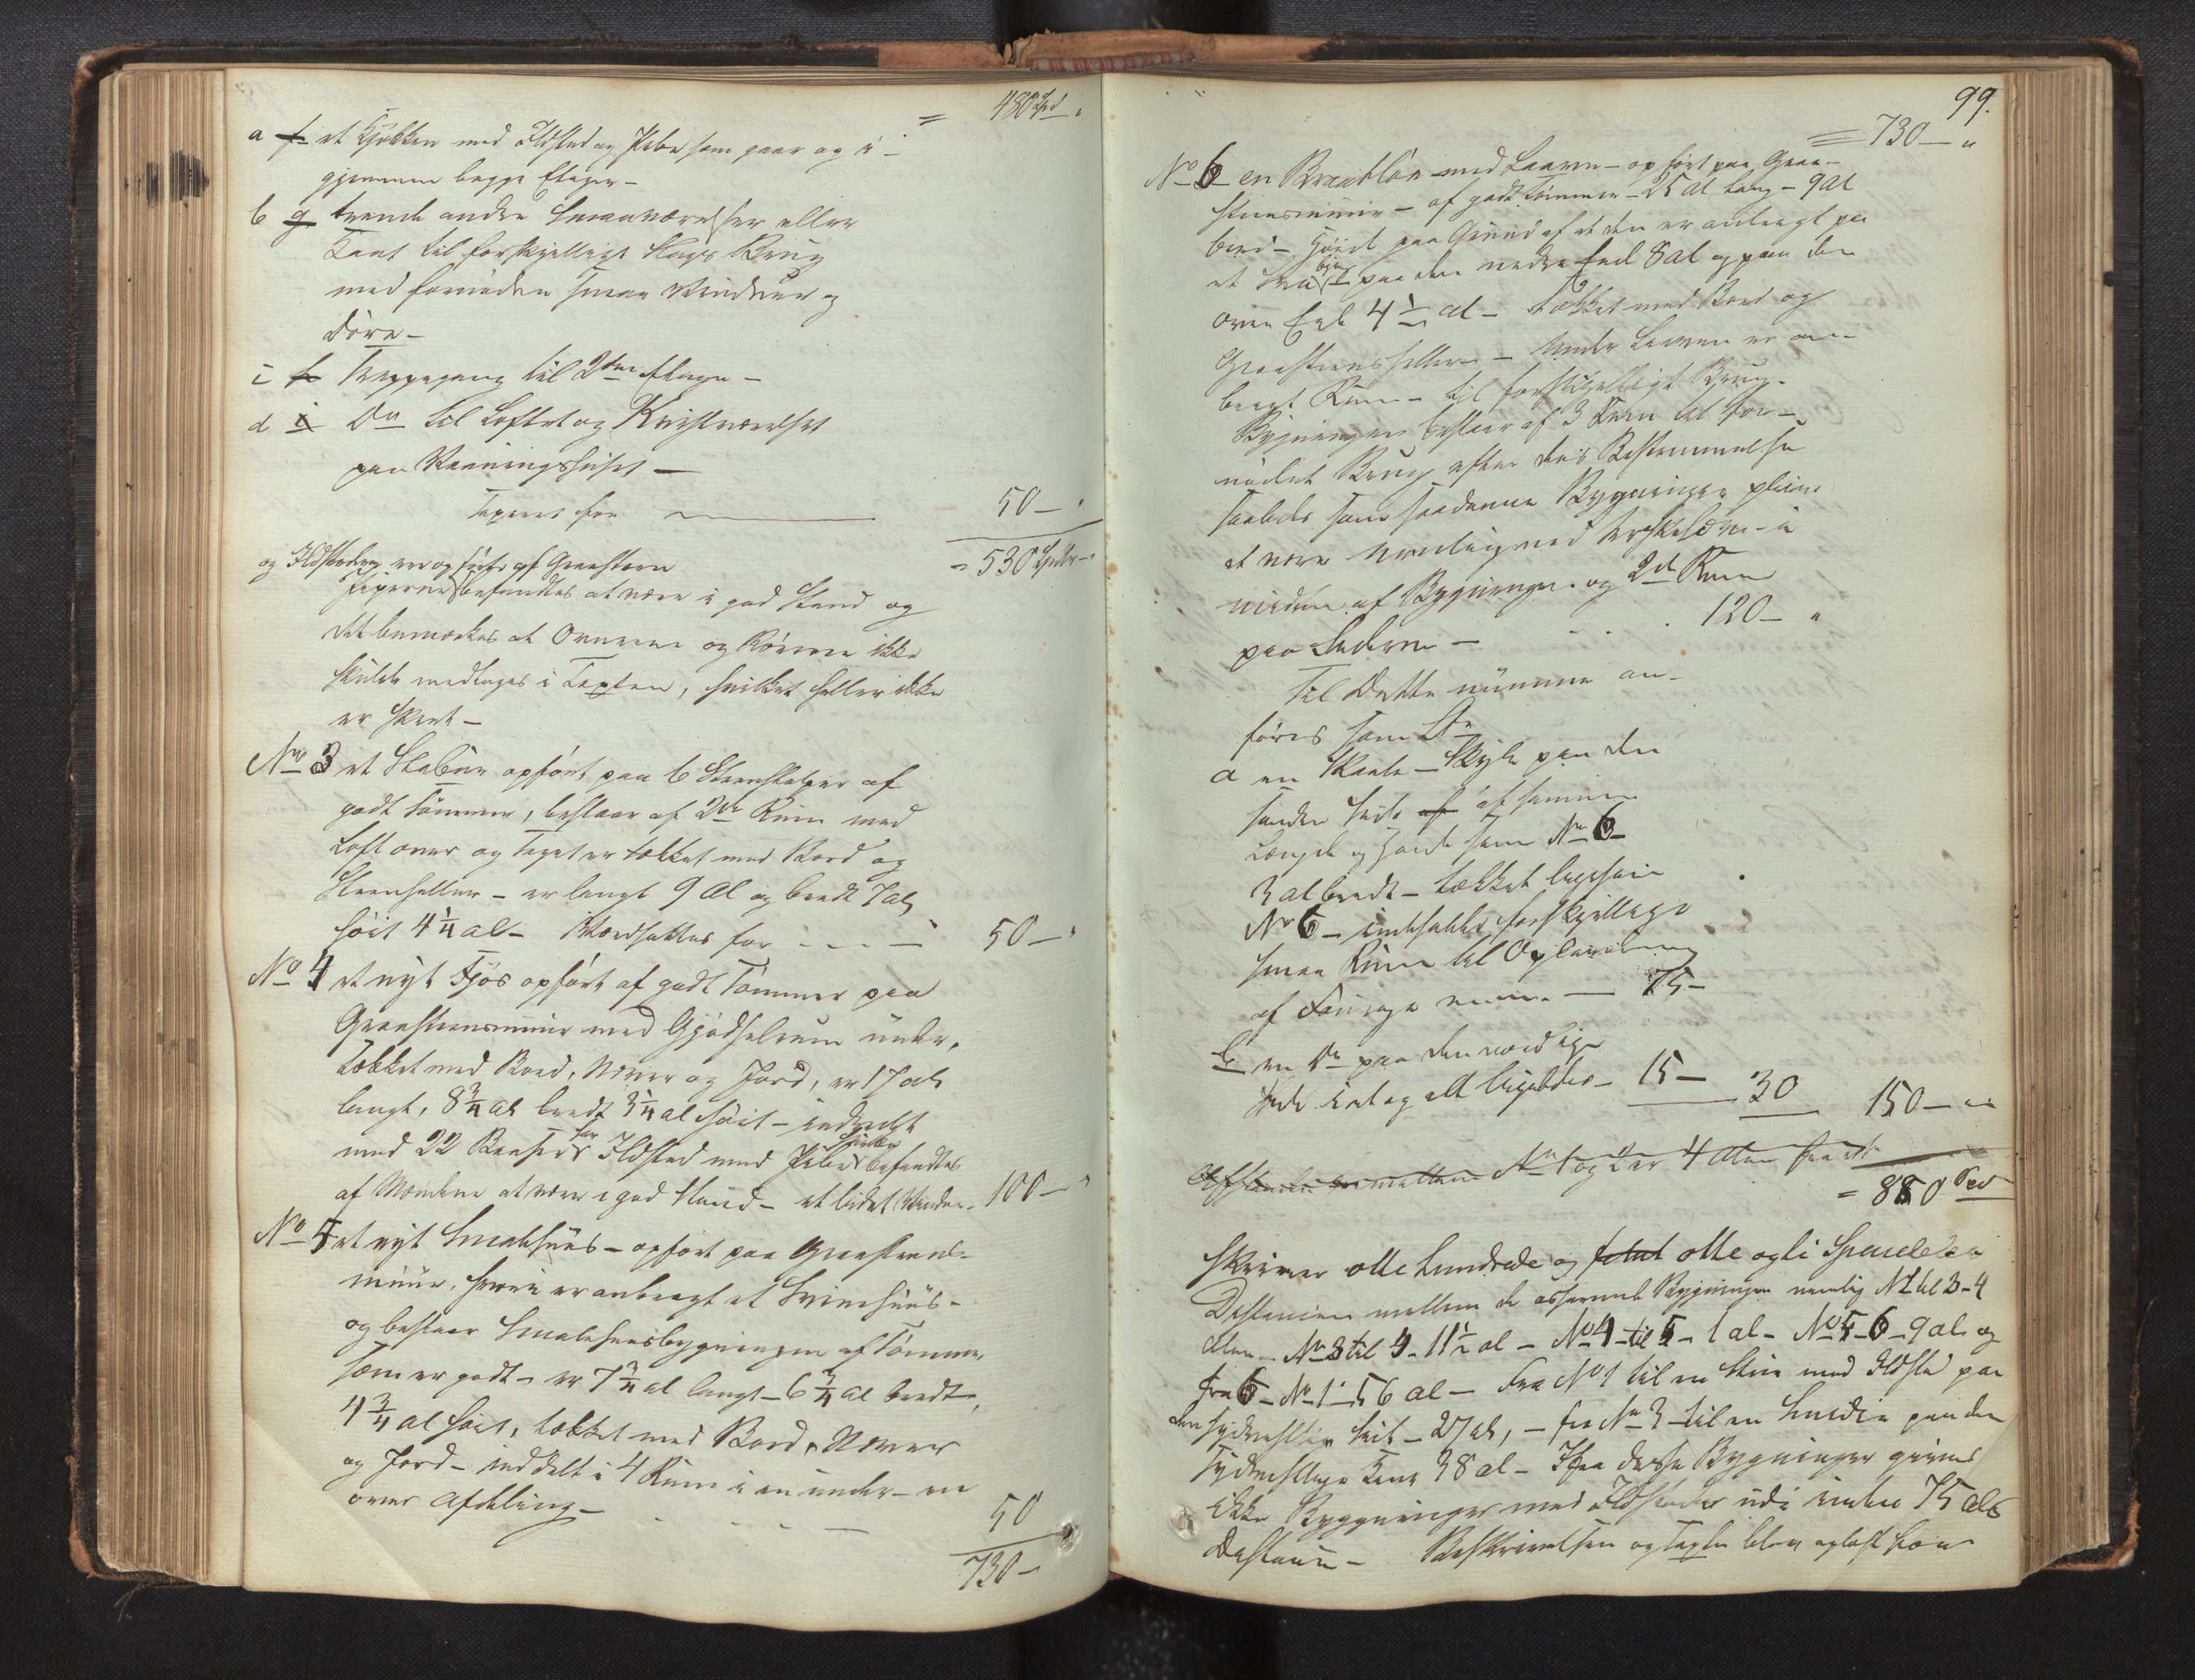 = 480 Spd "
a f et Kjøkken med Ildsted og Pibe som gaar op i-
gjennem begge Etager -
b g tvende andre Smaaværelser eller
Rum til forskjelligt Slags Brug
med fornøden smaa Vinduer og
Døre -
c h Trappegang til 2den Etage -
d i Do til Loftet og Kvistværelset
paa Vaaningshuset -
Taxeres for 50 - "
= 530 Spdlr - "
og Ildstederne ere opførte af Graasteen
Piperne befandtes at være i god Stand og
det bemærkes at Ovnene og Rørene ikke
skulde medtages i Taxten, hvilket heller ikke
er skeet -
No 3 et Stabur opført paa 6 Steenstolper af
godt Tømmer, bestaar af 2de Rum med
Loft over og Taget er tækket med Bord og
Steenheller - er langt 9 al og bredt 7 al,
høit 4 1/4 al - Værdsættes for - - - 50 - "
No 4 et nyt Fjøs opført af godt Tømmer paa
Graasteensmuur med Gjødselrum under,
tækket med Bord, Næver og Jord, er 17 al
langt, 8 3/4 al bredt 3 1/4 al høit - indredt
med 22 Baase har Ildsted med Pibe hvilke befandtes
af Mændene at være i god Stand - et lidet Vindue - 100 - "
No 5 et nyt Smalehuus - opført paa Graasteens-
muur, hvori er anbragt et Sviinehuus -
og bestaar Smalehuusbygningen af Tømmer
som er godt - er 7 3/4 al langt - 6 3/4 al bredt,
4 3/4 al høit, tækket med Bord, Næver
og Jord - inddelt i 4 Rum i en under- en
over Afdeling - 50
730 -
99.
= 730 - "
No 6 en Braatløe med Laave - opført paa Graa-
steensmuur - af godt Tømmer - 25 al lang - 9 al
bred - Høide paa Grund af at den er anlagt paa
et Skraabjerg - paa den nedre Ende 8 al og paa den
øvre Ende 4 1/2 al - tækket med Bord og
Graasteensheller - Under Laaven er an-
bragt Rum - til forskjelligt Brug -
Bygningen bestaar af 3 Rum til for-
nødent Brug efter dets Bestemmelse
saaledes som saadanne Bygninger pleie
at være nemlig med Træskelaave i
midten af Bygningen og 2de Rum
paa Siderne - 120 - "
Til dette numer an-
føres som Lr
a en Skaale - Skykke paa den
søndre Side af samme
Længde og Høide som No 6
3 al bredt - tækket ligesom
No 6 - indeholder forskjellige
smaa Rum til Opbevaring
af Fourage m.m. - 15 -
b en Do paa den nordlige
Side i et og alt ligeledes - 15 - 30 150 - "
Afstanden imellem No 1 og 2 er 4 Alen fra
= 880 Spd
Skriver otte hundrede og otte ogti Speciedaler
Distancen mellem de assurerede Bygninger nemlig No 1 til 3 - 4
Alen - No 3 til 4 - 11 1/2 al - No 4 til 5 - 1 al - No 5 - 6 - 9 al og
fra 6 - No 1 - 56 al - Fra No 1 til en Stue med Ildsted paa
den sydvestlige Side - 27 al, - fra No 3 til en Smedie paa den
sydvestlige Kant 38 al - Fra disse Bygninger gives
ikke Bygninger med Ildsteder udi mindre 75 Als
Distance - Beskrivelsen og Taxten blev oplæst for